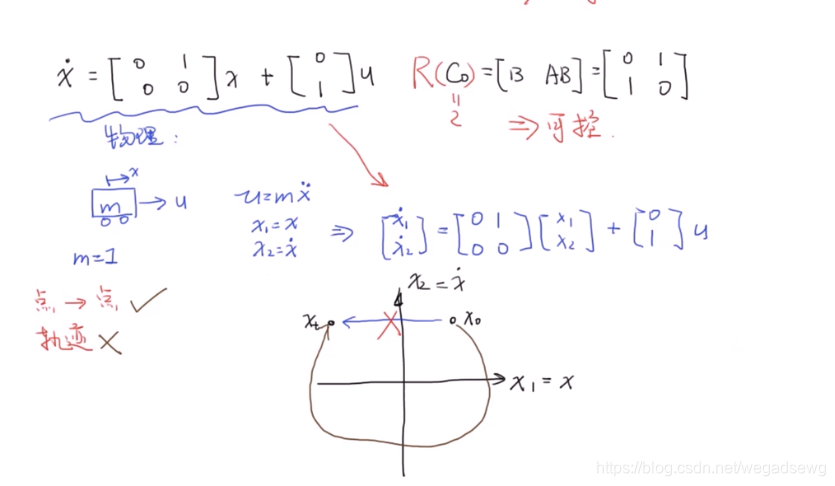 ẋ = [0 1; 0 0] x + [0; 1] u R(C₀) = [B AB] = [0 1; 1 0]
=
2
⇒ 可控.
物理:
→x
m → u
m=1
u=mẍ
x₁=x
x₂=ẋ
⇒ [ẋ₁; ẋ₂] = [0 1; 0 0] [x₁; x₂] + [0; 1] u
点 → 点 ✓
轨迹 ×
x₂=ẋ
xₜ
x₀
x₁ = x
https://blog.csdn.net/wegadsewg